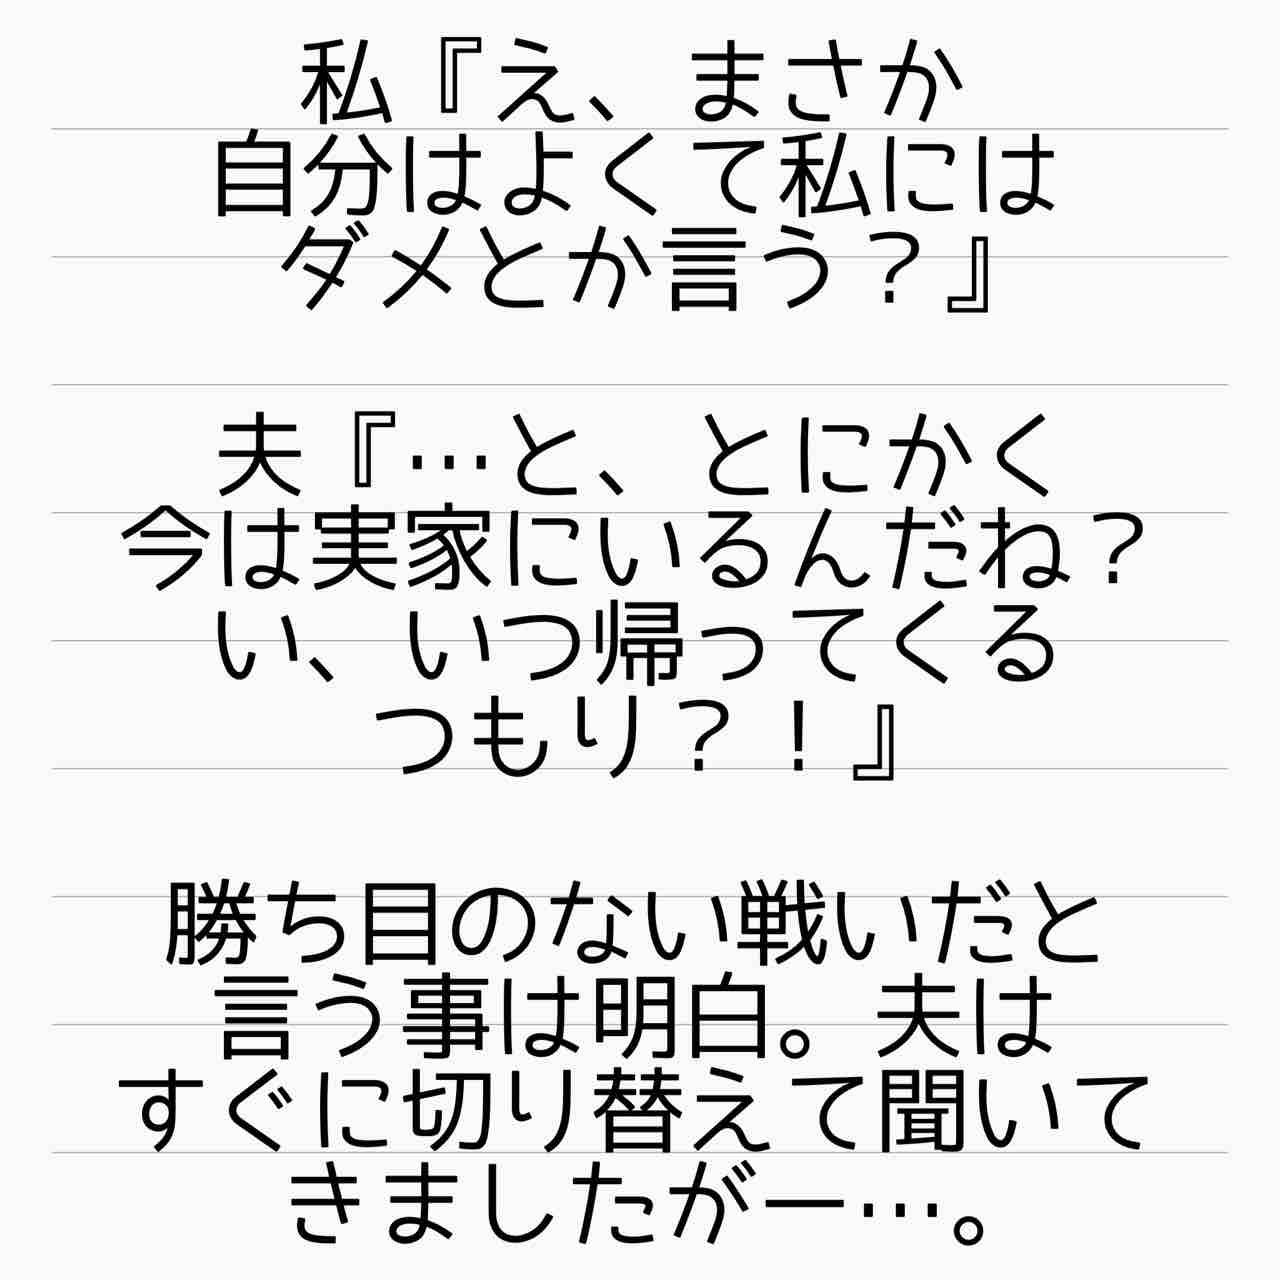 私『え、まさか
自分はよくて私には
ダメとか言う？』
夫『…と、とにかく
今は実家にいるんだね？
い、いつ帰ってくる
つもり？！』
勝ち目のない戦いだと
言う事は明白。夫は
すぐに切り替えて聞いて
きましたがー…。